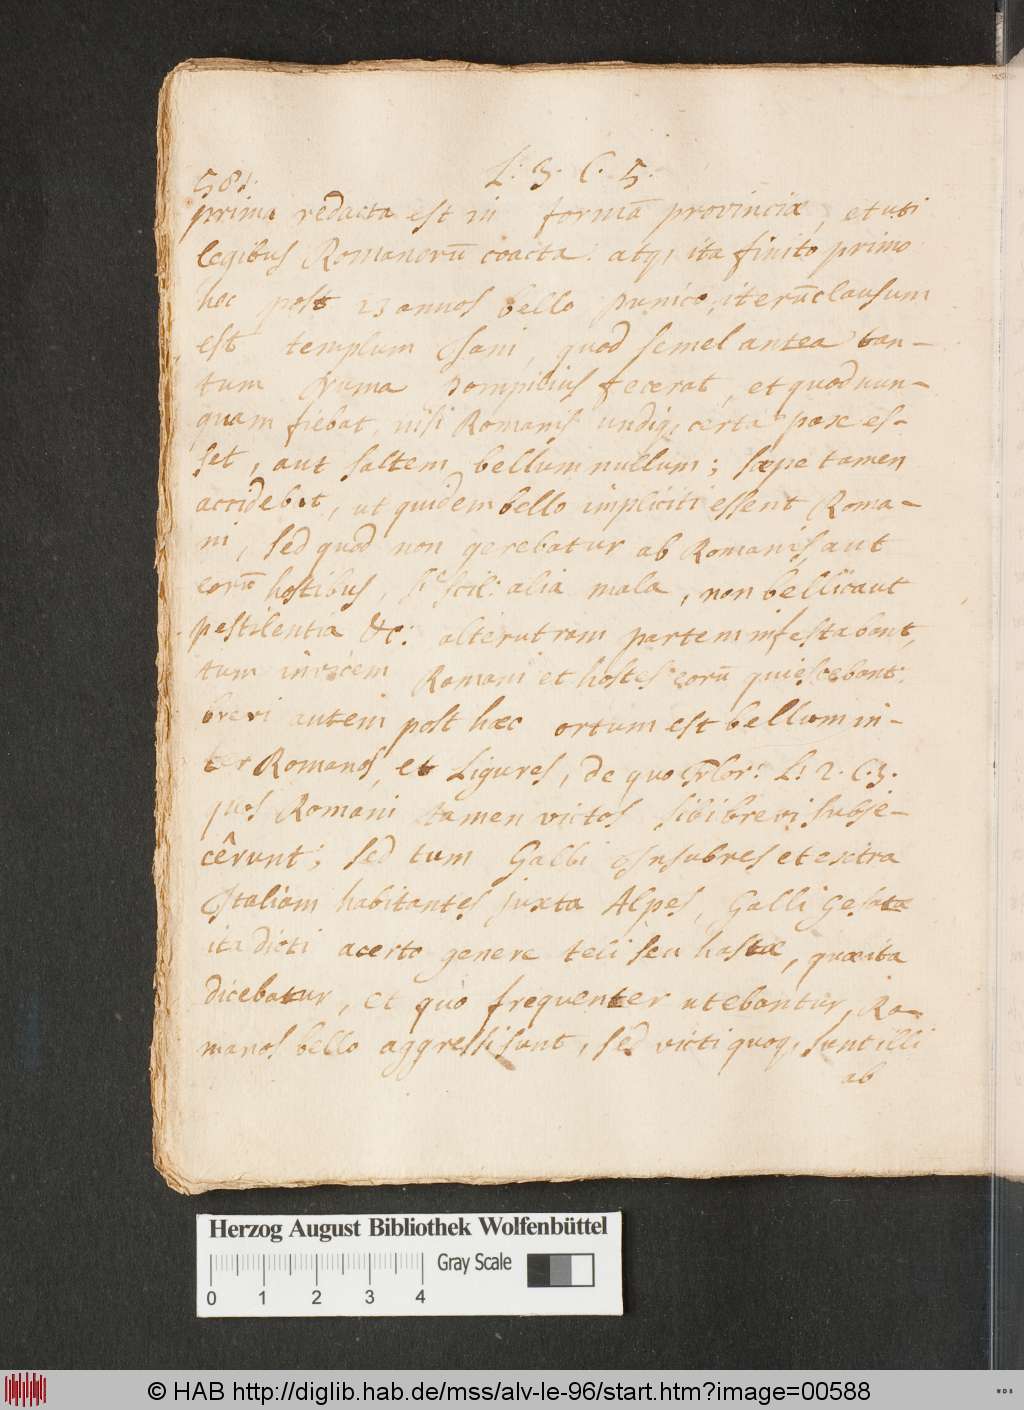 L. 3. C. 5.
581.
prima redacta est in formā provinciæ, et uti
legibus Romanorū coacta: atq, ita finito primo
hoc post 23 annos bello punico, iterū clausum
est templum Jani, quod semel antea tan-
tum Numa Pompilius fecerat, et quod nun-
quam fiebat, nisi Romanis undiq, certa pax es-
set, aut saltem bellum nullum; sæpe tamen
accidebat, ut quidem bello impliciti essent Roma-
ni, sed quod non gerebatur ab Romanis, aut
eorū hostibus, scil: alia mala, non bellica ut
pestilentia &c: alterutram partem infestabant,
tum invicem Romani et hostes eorū quiescebant:
brevi autem post hæc ortum est bellum in-
ter Romanos, et Ligures, de quo Flor: L: 2. C. 3.
quos Romani tamen victos sibi brevi subje-
cêrunt; sed tum Galli Insubres et extra
Italiam habitantes juxta Alpes, Galli Gesatæ
ita dicti a certo genere teli seu hastæ, quæ ita
dicebatur, et quò frequenter utebantur, Ro-
manos bello aggressi sunt, sed victi quoq, sunt illi
ab
Herzog August Bibliothek Wolfenbüttel
Gray Scale
0 1 2 3 4
© HAB http://diglib.hab.de/mss/alv-le-96/start.htm?image=00588